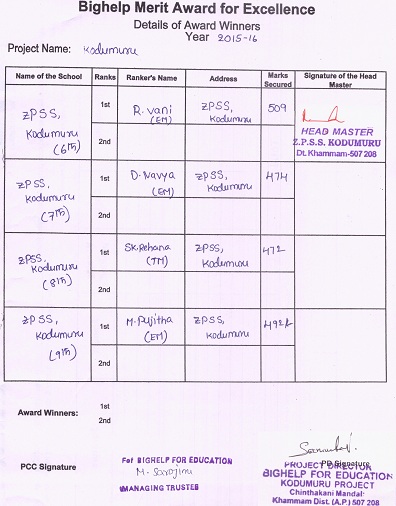 Bighelp Merit Award for Excellence
Details of Award Winners
Year 2015-16
Project Name: Kodumuru
Name of the School Ranks Ranker's Name Address Marks Secured Signature of the Head Master
ZPSS, Kodumuru (6th) 1st R. Vani (EM) ZPSS, Kodumuru 509
2nd
HEAD MASTER
Z.P.S.S. KODUMURU
Dt. Khammam-507 208
ZPSS, Kodumuru (7th) 1st D. Navya (EM) ZPSS, Kodumuru 474
2nd
ZPSS, Kodumuru (8th) 1st SK. Rehana (TM) ZPSS, Kodumuru 472
2nd
ZPSS, Kodumuru (9th) 1st M. Pujitha (EM) ZPSS, Kodumuru
2nd
Award Winners: 1st
2nd
PCC Signature
For BIGHELP FOR EDUCATION
M. Sarojini
MANAGING TRUSTEE
PD Signature
PROJECT DIRECTOR
BIGHELP FOR EDUCATION
KODUMURU PROJECT
Chinthakani Mandal
Khammam Dist. (A.P.) 507 208